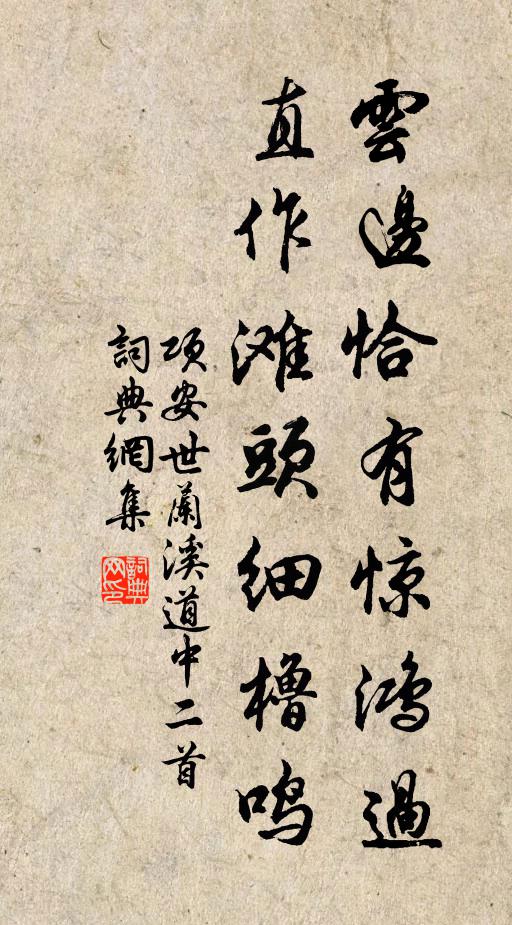 雲邊恰有惊鴻過
直作滩頭細櫓鸣
项安世蘭溪道中二首
詞典網集
詞典网印